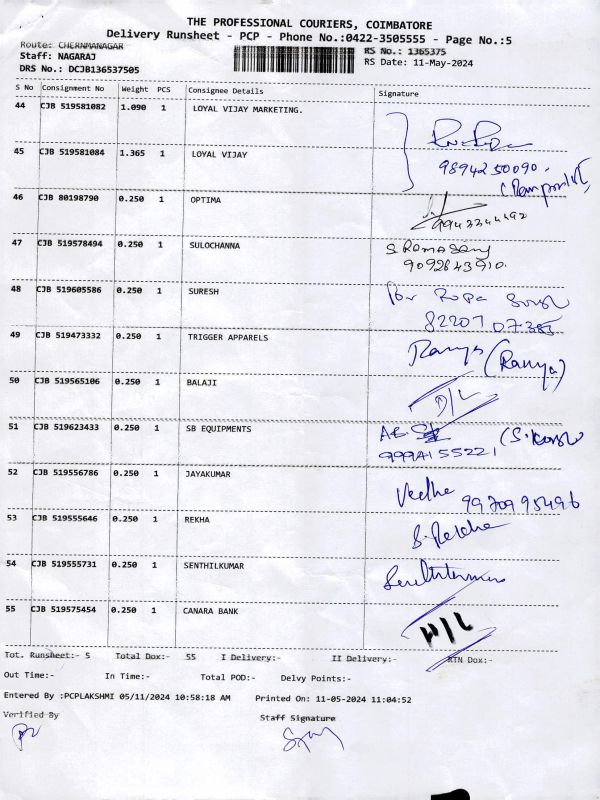 THE PROFESSIONAL COURIERS, COIMBATORE
Delivery Runsheet - PCP - Phone No.:0422-3505555 - Page No.:5
Route: CHERNMANAGAR RS No.: 1365375
Staff: NAGARAJ RS Date: 11-May-2024
DRS No.: DCJB136537505
S No Consignment No Weight PCS Consignee Details Signature
44 CJB 519581082 1.090 1 LOYAL VIJAY MARKETING.
45 CJB 519581084 1.365 1 LOYAL VIJAY 9894250090.
46 CJB 80198790 0.250 1 OPTIMA
47 CJB 519578494 0.250 1 SULOCHANNA S Ramasamy
9092643910.
48 CJB 519605586 0.250 1 SURESH
82207 07385
49 CJB 519473332 0.250 1 TRIGGER APPARELS Ramya (Ramya)
50 CJB 519565106 0.250 1 BALAJI D/L
51 CJB 519623433 0.250 1 SB EQUIPMENTS
52 CJB 519556786 0.250 1 JAYAKUMAR Vedha 9970995496
53 CJB 519555646 0.250 1 REKHA S. Rekha
54 CJB 519555731 0.250 1 SENTHILKUMAR
55 CJB 519575454 0.250 1 CANARA BANK
Tot. Runsheet:- 5 Total Dox:- 55 I Delivery:- II Delivery:- RTN Dox:-
Out Time:- In Time:- Total POD:- Delvy Points:-
Entered By :PCPLAKSHMI 05/11/2024 10:58:18 AM Printed On: 11-05-2024 11:04:52
Verified By Staff Signature